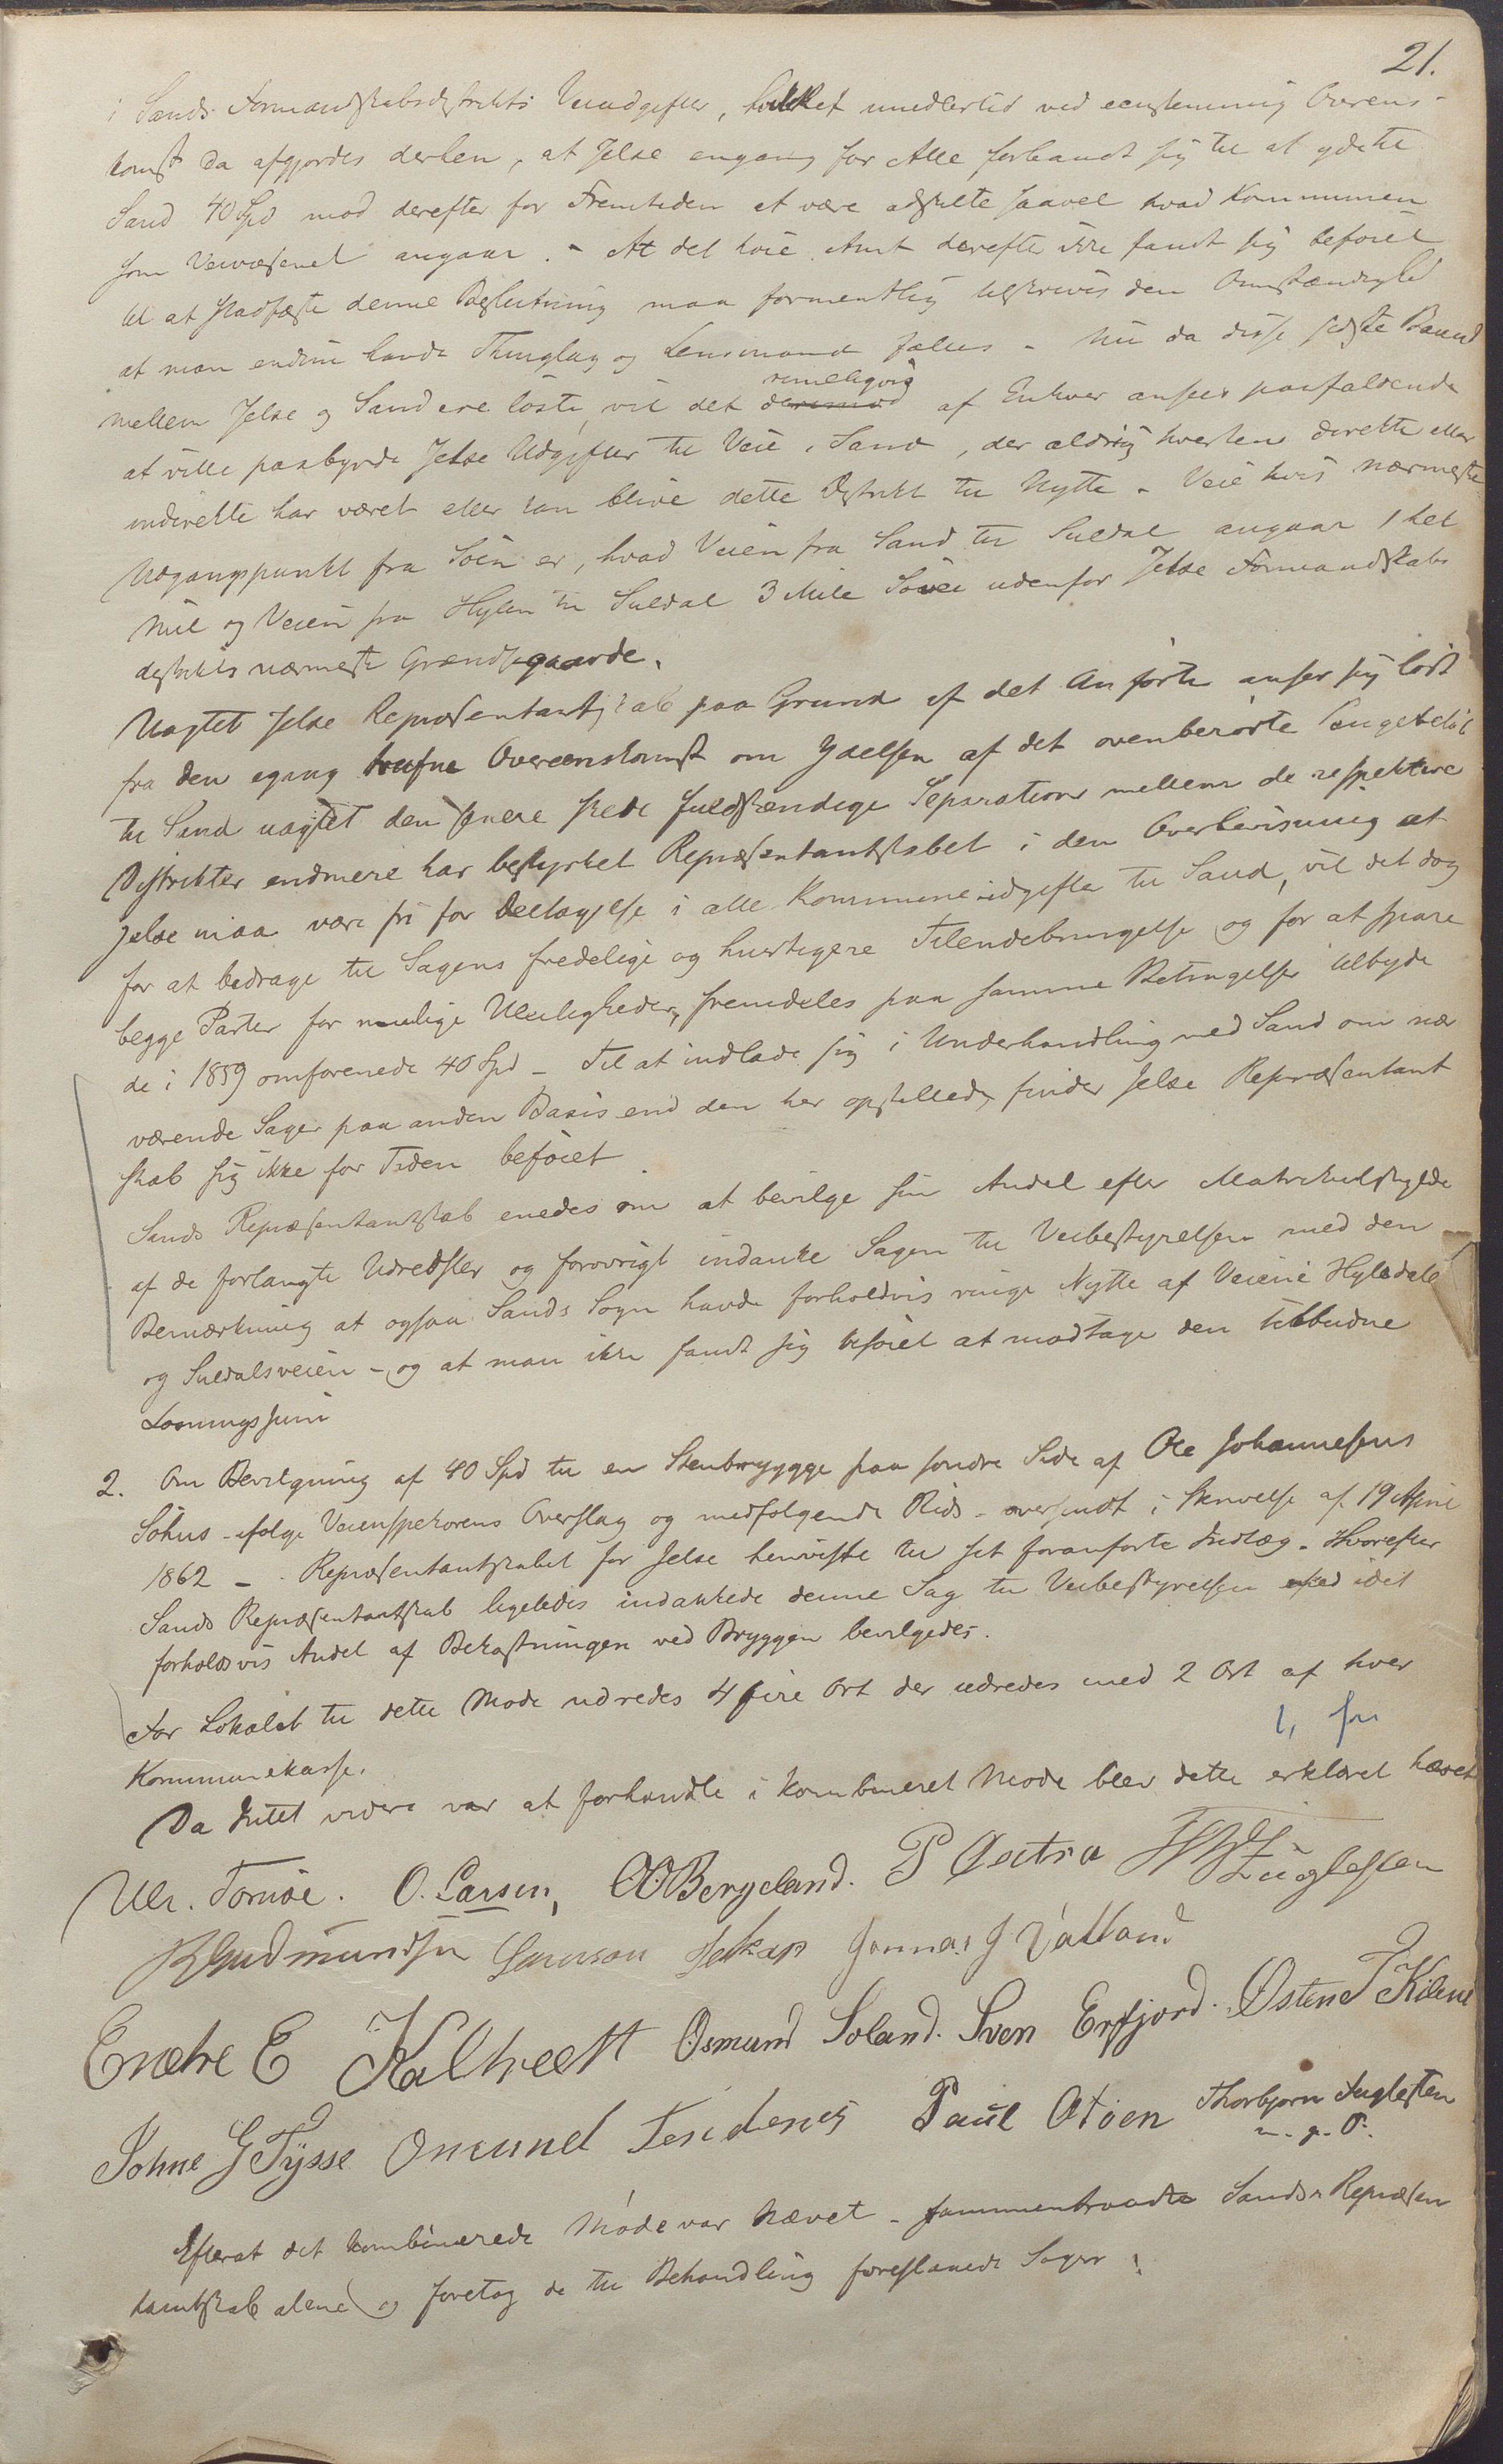 21.
i Sands Formandskabsdistrikts Veiudgifter, hvilket imidlertid ved eenstemmig Overens-
komst da afgjordes derhen, at Jelse engang for Alle forbandt sig til at yde til
Sand 40 Spd mod derefter for Fremtiden at være adskilte saavel hvad Kommunen
som Veivæsenet angaar. - At det høie Amt derefter ikke fandt sig beføiet
til at stadfæste denne Beslutning maa formentlig tilskrives den Omstændighed
at man endnu havde Thinglag og Lensmand fælles - Nu da disse sidste Baand
rimeligvis
mellem Jelse og Sand ere løste, vil det derimod af Enhver ansees paafaldende
at ville paabyrde Jelse Udgifter til Veie i Sand, der aldrig hverken direkte eller
indirekte har været eller kan blive dette Distrikt til Nytte - Veie hvis nærmeste
Udgangspunkt fra Søen er, hvad Veien fra Sand til Suldal angaar 1 hel
Miil og Veien fra Hylen til Suldal 3 Mile Søvei udenfor Jelse Formandskabs
distrikts nærmeste Grændsegaarde.
Uagtet Jelse Repræsentantskab paa Grund af det Anførte anser sig løst
fra den engang trufne Overeenskomst om Ydelsen af det ovenberørte Pengebeløb
til Sand uagtet den senere skede fuldstændige Separation mellem de respektive
Distrikter endmere har bestyrket Repræsentantskabet i den Overbevisning at
Jelse maa være fri for Deeltagelse i alle Kommuneudgifter til Sand, vil det dog
for at bidrage til Sagens fredelige og hurtigere Tilendebringelse og for at spare
begge Parter for mulige Uleiligheder, fremdeles paa samme Betingelser tilbyde
de i 1859 omforenede 40 Spd - Til at indlade sig i Underhandling med Sand om nær
værende Sager paa anden Basis end den her opstillede, finder Jelse Repræsentant
skab sig ikke for Tiden beføiet
Sands Repræsentantskab enedes om at bevilge sin Andel efter Matrikulskylden
af de forlangte Udredsler og forøvrigt indanke Sagen til Veibestyrelsen med den
Bemærkning at ogsaa Sands Sogn havde forholdvis ringe Nytte af Veiene Hylsdals
og Suldalsveien - og at man ikke fandt sig beføiet at modtage den tilbudne
Løsningssum
2. Om Bevilgning af 40 Spd til en Steenbrygge paa søndre Side af Ole Johannesens
Søhus - ifølge Veiinspektørens Overslag og medfølgende Rids - oversendt i Skrivelse af 19 April
1862 - . Repræsentantskabet for Jelse henviste til sit foranførte Indlæg - Hvorefter
Sands Repræsentantskab ligeledes indankede denne Sag til Veibestyrelsen idet
forholdsvis Andel af Bekostningen ved Bryggen bevilgedes.
For Lokalet til dette Møde udredes 4 fire Ort der udredes med 2 Ort af hver
Kommunekasse.
Da Intet videre var at forhandle i kombineret Møde blev dette erklæret hævet
Ulr. Tornøe. O. Larsen, Bergeland. P
Gudmundsen Samson Jelse Gunnar J Vatland
Endre E Kaltveet Osmund Soland. Sven Erfjord. Østen T Kilene
Johne G Tysse Omund Tendenes Paul Otøen Thorbjørn Fuglesten
m. p. P.
Efterat det kombinerede Møde var hævet - sammentraadte Sands Repræsen
tantskab alene og foretog de til Behandling foreslaaede Sager: